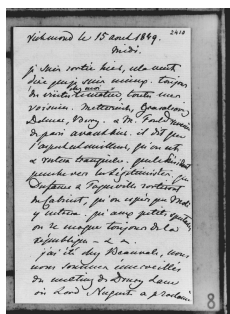 2410
Richmond le 15 août 1849.
Midi.
je suis sortie hier, cela veut
dire que je suis mieux. toujours
des visites chez moi, toutes mes
voisins. Metternich,
Delmar, Bury. & M. Fould venu
de paris avant hier. il dit que
l'aspect est meilleur, qu'on est
& rentre tranquille. que le
penche vers les légitimistes, que
Dufaure & Tocqueville sortiront
du Cabinet, qu'on espère que Molé
y entrera. qu'aux petits spectacles
on se moque toujours de la
république - &a.
j'ai vu chez Beauvale, nous
nous sommes émerveillés
du meeting de Drury Lane
où Lord Nugent a proclamé
8